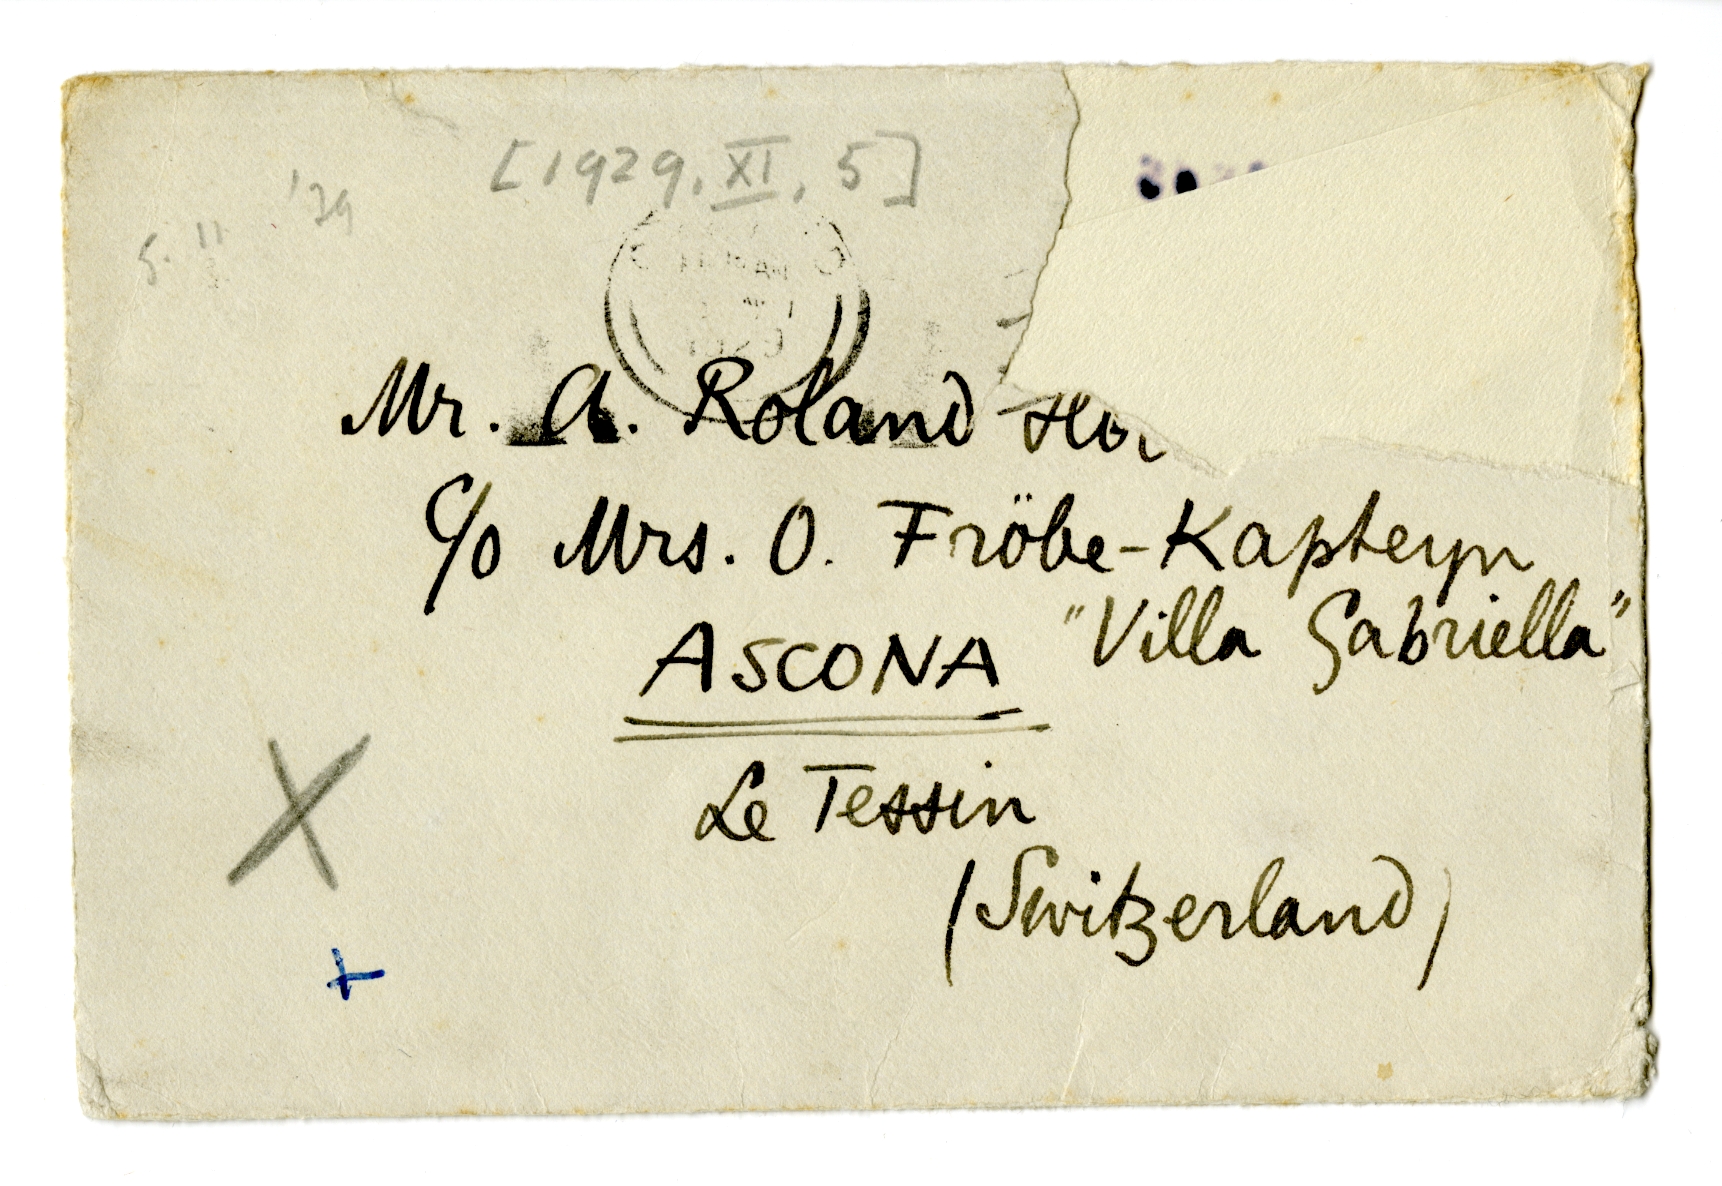 [1929, XI, 5]
5. 11 '29
Mr. A. Roland Hol
C/o Mrs. O. Fröbe-Kapteyn
"Villa Gabriella"
ASCONA
Le Tessin
(Switzerland)